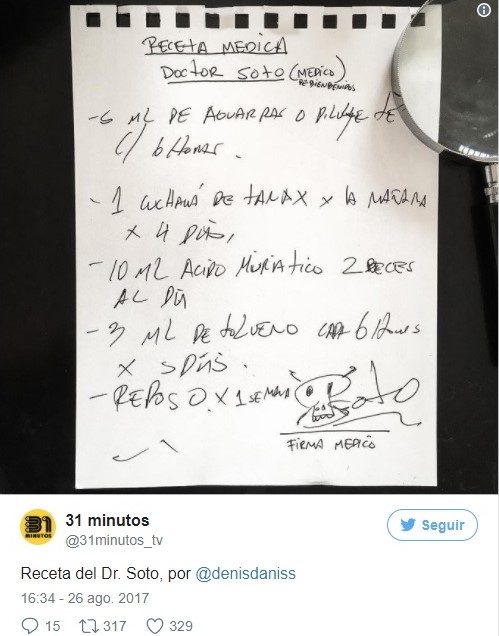 RECETA MEDICA
DOCTOR SOTO (MEDICO)
- 6 ML DE AGUARRAS O DILUYENTE
C/ 6 HORAS.
- 1 CUCHARÁ DE TANAX X LA MAÑANA
X 4 DIAS,
- 10 ML ACIDO MURIATICO 2 BECES
AL DIA
- 3 ML DE TOLUENO CADA 6 HORAS
X 5 DIAS.
- REPOSO X 1 SEMANA
Soto
FIRMA MEDICO
31 minutos
@31minutos_tv
Seguir
Receta del Dr. Soto, por @denisdaniss
16:34 - 26 ago. 2017
15 317 329
31
MINUTOS